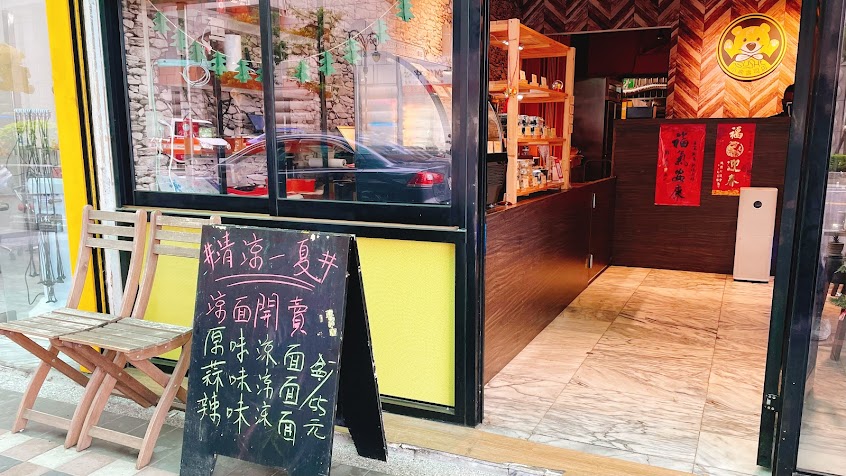 #清涼一夏#
涼面開賣
原味涼面
蒜味涼面
辣味涼面
/55元
福氣
福
迎春